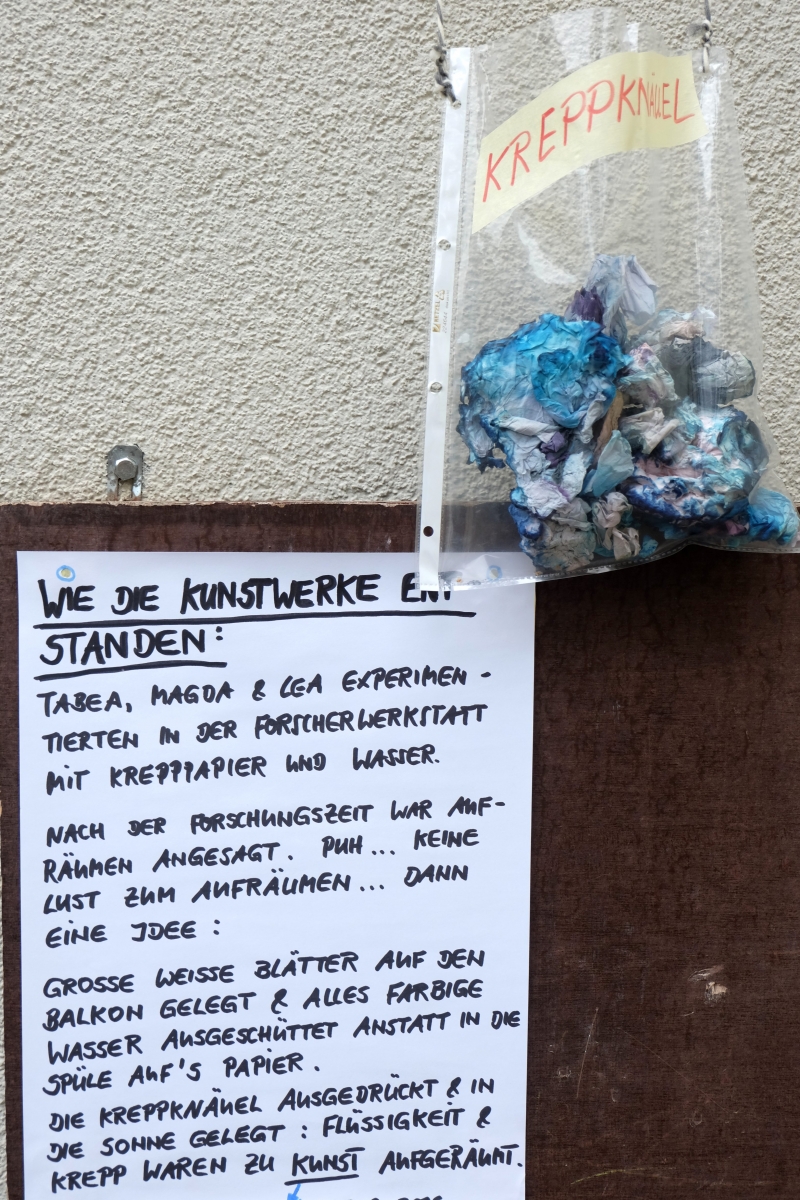 KREPPKNÄUEL
WIE DIE KUNSTWERKE ENT
STANDEN:
TABEA, MAGDA & LEA EXPERIMEN-
TIERTEN IN DER FORSCHERWERKSTATT
MIT KREPPPAPIER UND WASSER.
NACH DER FORSCHUNGSZEIT WAR AUF-
RÄUMEN ANGESAGT. PUH... KEINE
LUST ZUM AUFRÄUMEN... DANN
EINE IDEE:
GROSSE WEISSE BLÄTTER AUF DEN
BALKON GELEGT & ALLES FARBIGE
WASSER AUSGESCHÜTTET ANSTATT IN DIE
SPÜLE AUF'S PAPIER.
DIE KREPPKNÄUEL AUSGEDRÜCKT & IN
DIE SONNE GELEGT: FLÜSSIGKEIT &
KREPP WAREN ZU KUNST AUFGERÄUMT.